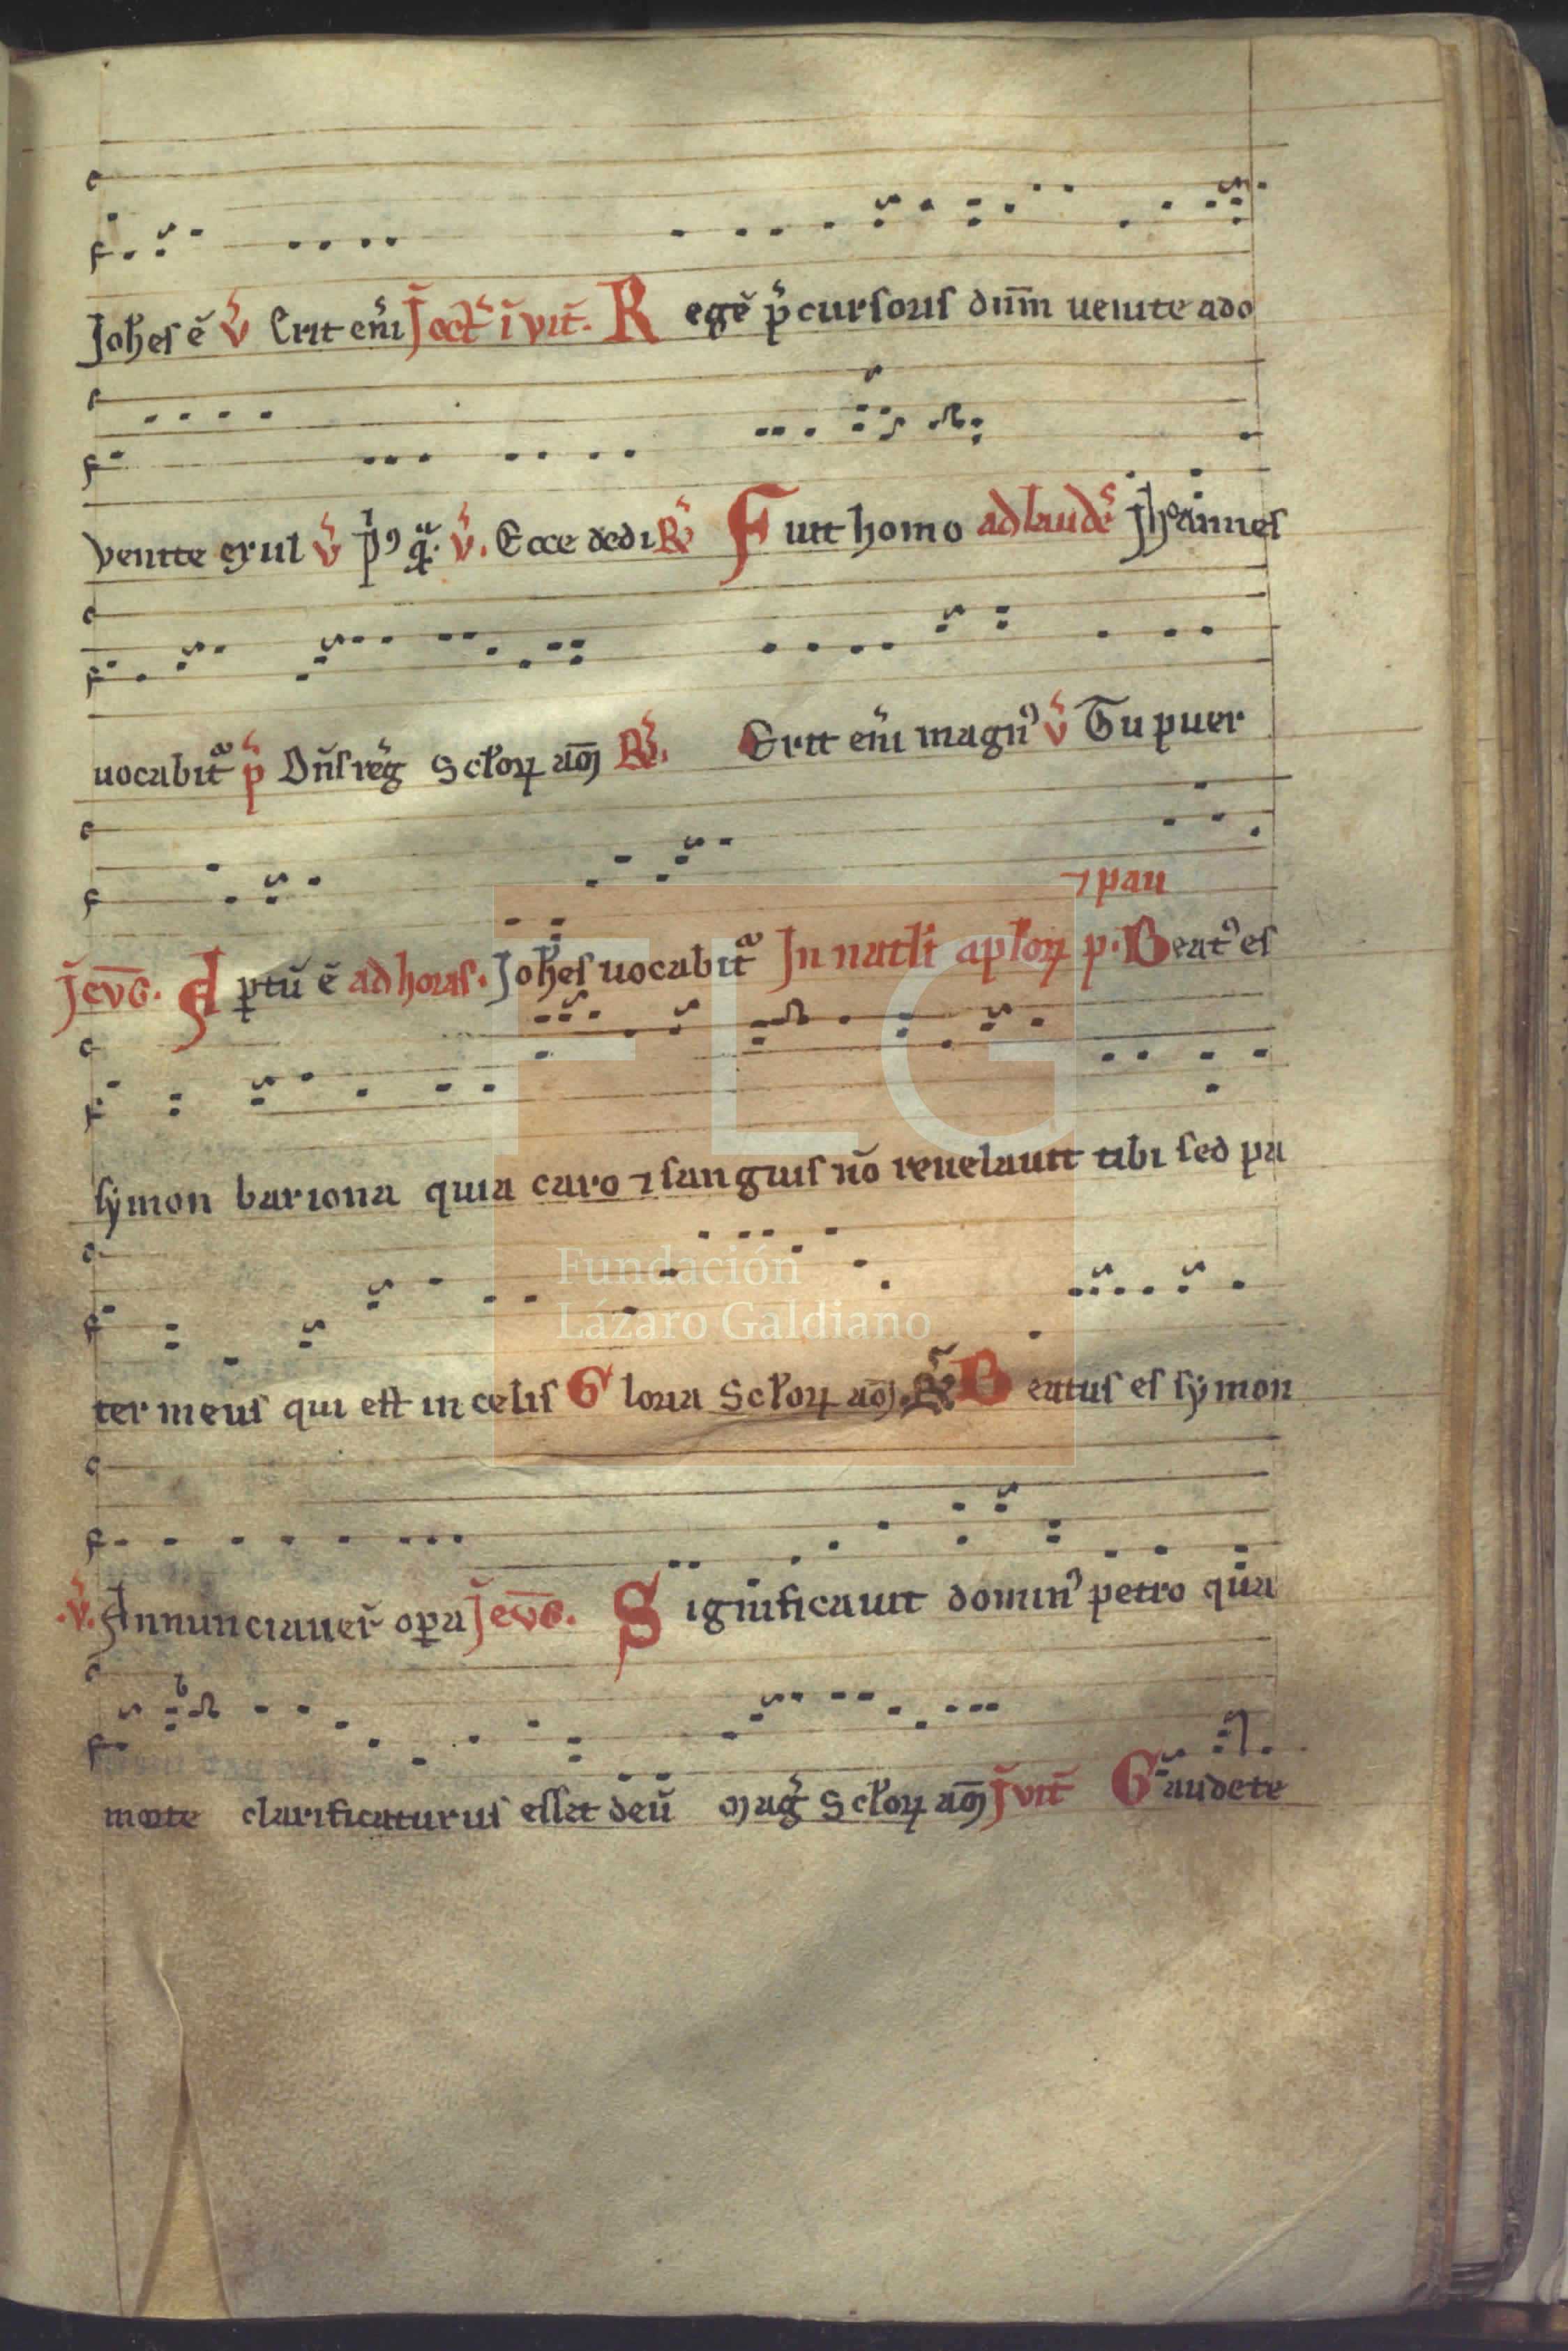 Joħes ē v̄ Erit eni̅ J oct̄ ī vit̄. R egē p̄cursoris dn̄m uenite ado
Venite exul v̄ p̄9 q̄. v̄. Ecce dedi R̄ Fuit homo ad laudē Jhoannes
uocabit̄ p̄ Dn̄s reḡ Scłoꝝ am̄ R̄. Erit eni̅ magn9 v̄ Tu puer
⁊ pau
J̄ ev̄G. A ꝑtū ē ad horas. Joħes uocabit̄ In natłi apłoꝝ p. Beat9 es
sẏmon bariona quia caro ⁊ sanguis nō reuelauit tibi sed pa
ter meus qui est in celis Gloria Scłoꝝ am̄. R̄ Beatus es sẏmon
.v̄. Annunciauer̄ oꝑa J̄ ev̄G. Significauit domin9 petro qua
morte clarificaturus esset deū Maḡ Scłoꝝ am̄ J̄ vit̄ Gaudete
FLG
Fundación
Lázaro Galdiano